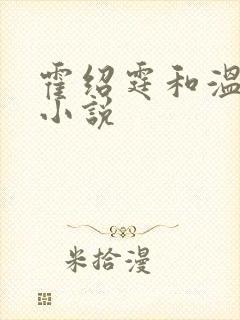 霍绍霆和温
小说
米拾漫